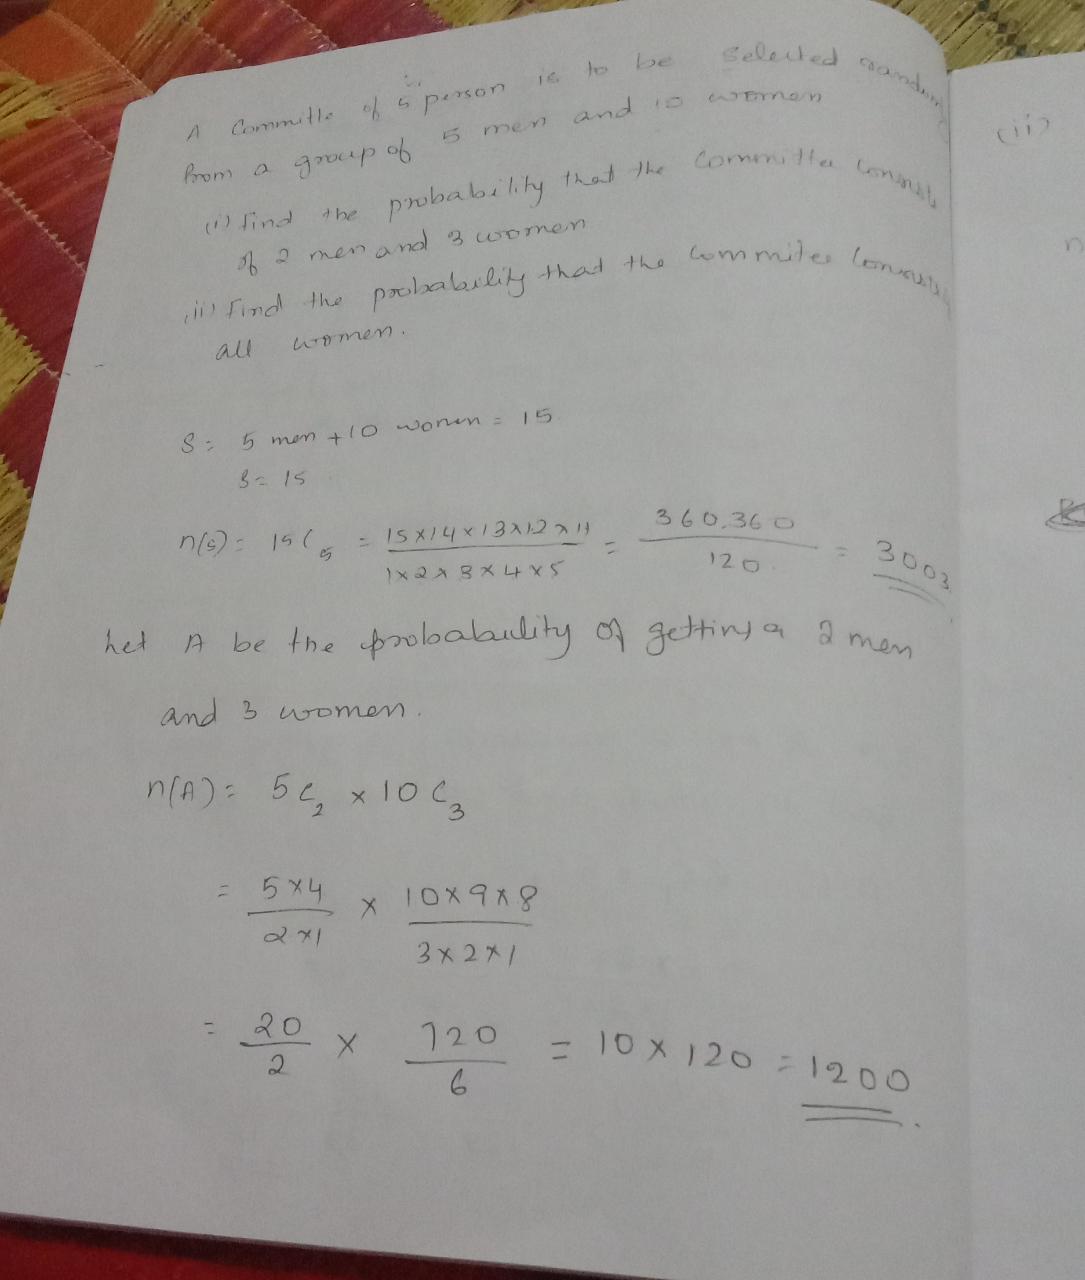 A Committe of 5 person is to be selected random
from a group of 5 men and 10 women
(i) find the probability that the Committee consists
of 2 men and 3 women
(ii) Find the probability that the commitee consists
all women.
S = 5 men + 10 women = 15
S = 15
n(s) = 15C5 = 15x14x13x12x11 / 1x2x3x4x5 = 360,360 / 120 = 3003
Let A be the probability of getting a 2 men
and 3 women.
n(A) = 5C2 x 10C3
= 5x4 / 2x1 x 10x9x8 / 3x2x1
= 20 / 2 x 720 / 6 = 10 x 120 = 1200
(ii)
n